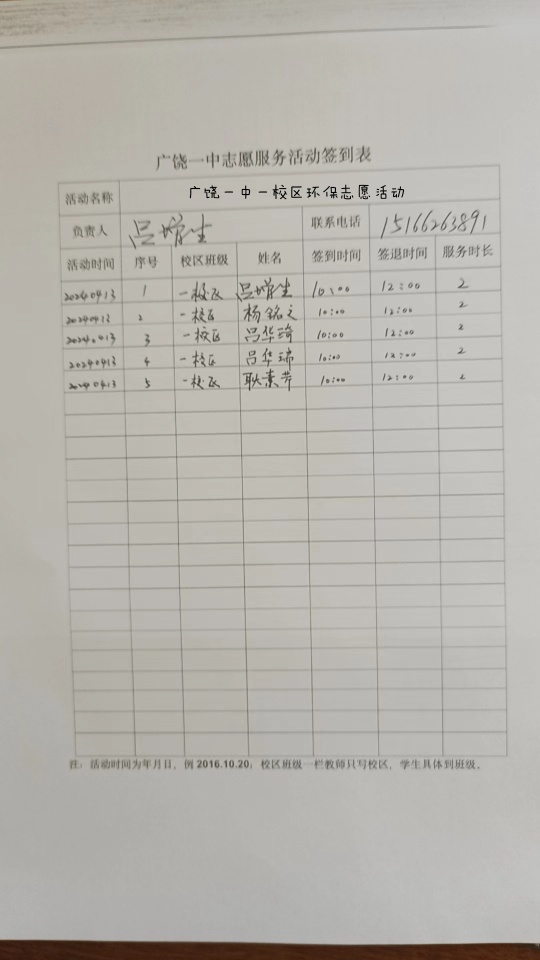 广饶一中志愿服务活动签到表
活动名称 广饶一中一校区环保志愿活动
负责人 吕增生 联系电话 15166263891
活动时间 序号 校区班级 姓名 签到时间 签退时间 服务时长
20240413 1 一校区 吕增生 10:00 12:00 2
20240413 2 一校区 杨铭文 10:00 12:00 2
20240413 3 一校区 吕华 10:00 12:00 2
20240413 4 一校区 吕华瑞 10:00 12:00 2
20240413 5 一校区 耿素芳 10:00 12:00 2
注：活动时间为年月日，例 2016.10.20；校区班级一栏教师只写校区，学生具体到班级。